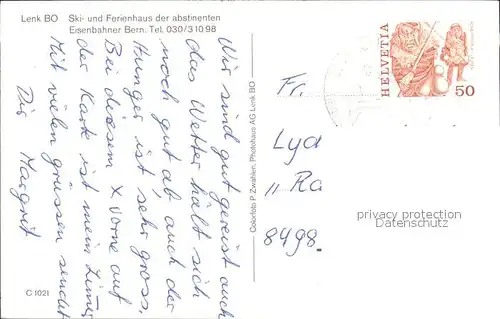 Lenk BO Ski- und Ferienhaus der abstinenten
Eisenbahner Bern. Tel. 030/3 10 98
Wir sind gut gereist auch
das Wetter hält sich
noch gut ab, auch der
Hunger ist sehr gross.
Bei diesem X vorne auf
der Karte ist mein Zimmer
Mit vielen grüssen sendet
Dir Margrit
C 1021
Colorfoto P. Zwahlen, Photohaus AG Lenk BO
HELVETIA
50
Fr.
Lyd
" Ra
8498.
privacy protection
Datenschutz